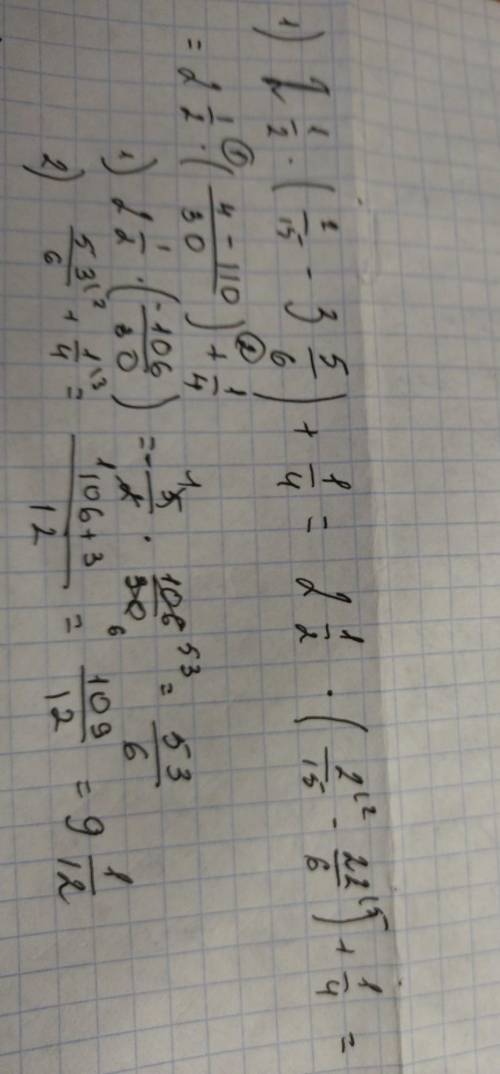 1) 2 1/2 · (2/15 - 3 5/6) + 1/4 = 2 1/2 · (2⁽²/15 - 22⁽⁵/6) + 1/4 =
= 2 1/2 ·① (4 - 110/30) +② 1/4
1) 2 1/2 · (-106/30) = - 5¹/2₁ · 106⁵³/30₆ = 53/6
2) 53⁽²/6 + 1⁽³/4 = 106+3/12 = 109/12 = 9 1/12